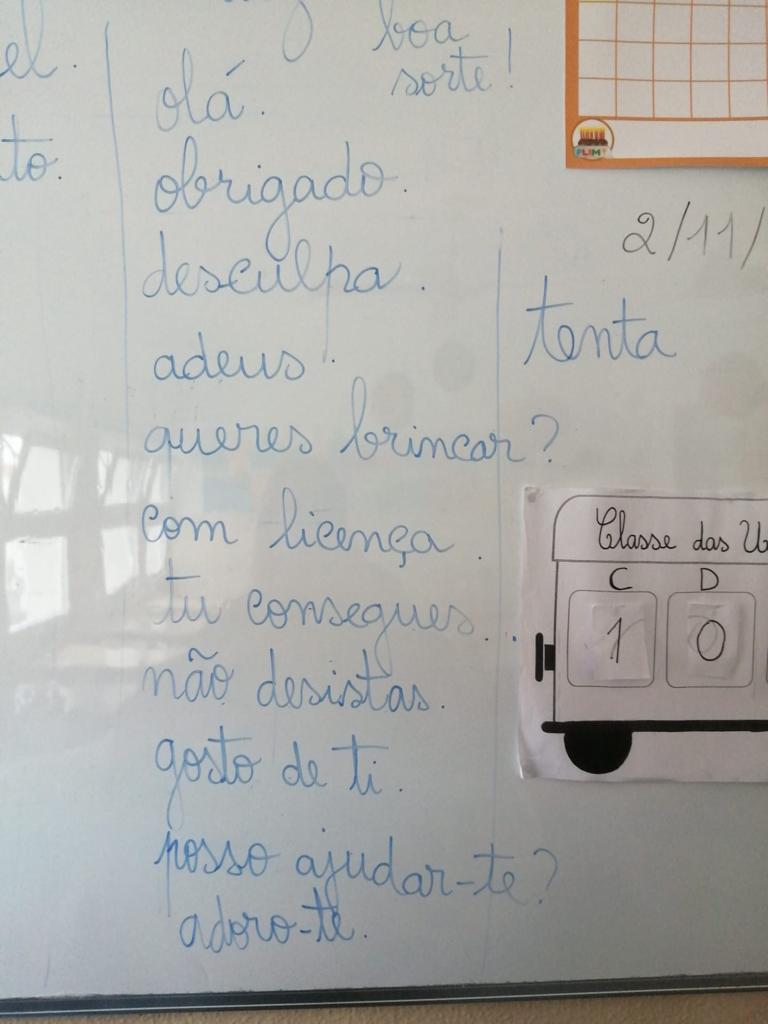 boa
sorte!
el.
to.
olá.
obrigado.
desculpa.
adeus.
queres brincar?
com licença.
tu consegues...
não desistas.
gosto de ti.
posso ajudar-te?
adoro-te.
PLIM!
2/11/
tenta
Classe das U
C D
1 0